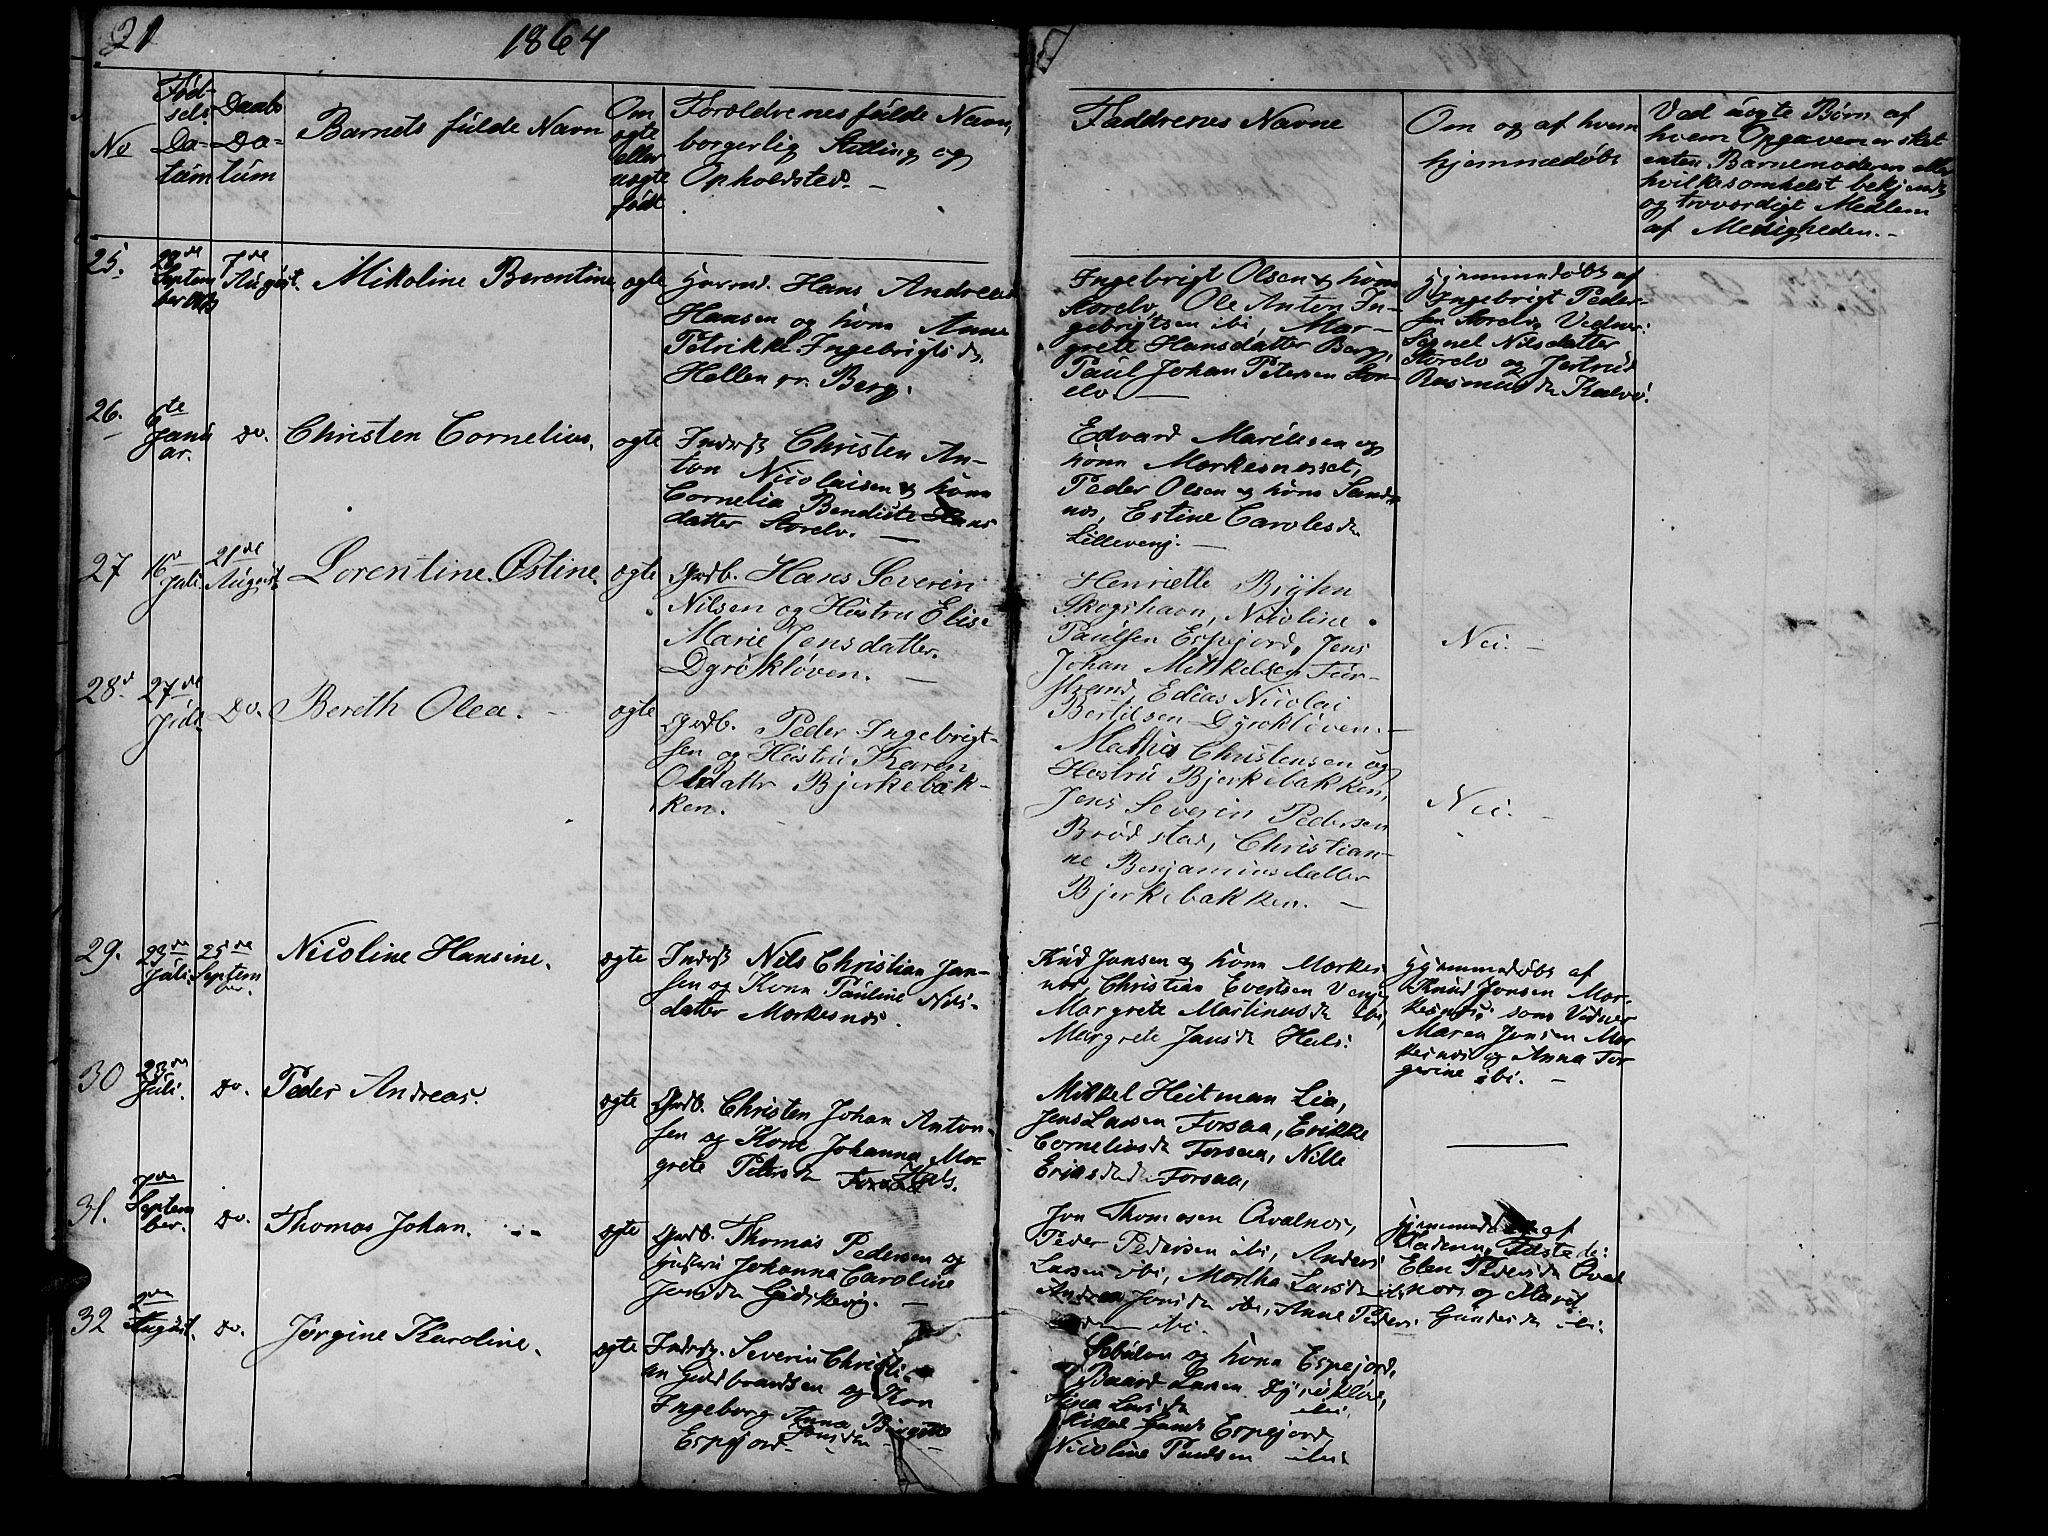 21 1864
No
Fød-
sels
Da-
tum
Daabs
Da-
tum
Barnets fulde Navn
Om
ægte
eller
uægte
født
Forældrenes fulde Navn,
borgerlig Stilling og
Opholdsted. —
Faddrenes Navne
Om og af hvem
hjemmedøbt
Ved uægte Børn af
hvem Opgaven er sket
enten Barnemoderen eller
hvilkesomhelst bekjendt
og troværdigt Medlem
af Menigheden. —
25.
Septem
ber
7de
August.
Mikoline Berentine
ægte
Hans Andreas
Hansen og kone Anne
Petrikke Ingebrigtsd.
Hellen Berg.
Ingebrigt Olsen & kone
Storelv, Ole Anton In-
gebrigtsen ibi, Mar-
grete Hansdatter Berg,
Paul Johan Petersen Stor-
elv. —
Hjemmedøbt af
Ingebrigt Peder-
sen Storelv, Vidner:
Nilsdatter
Storelv og Jertrud
Rasmusdr Kalvø.
26.
6te
Janu
ar.
Do.
Christen Cornelius.
ægte
Inderst Christen An-
ton Nicolaisen & kone
Cornelia Bendicte Hans
datter Storelv. —
Edvard og
kone Markesnæsset,
Peder Olsen & kone Sand-
nes, Estine Carolesdr
Lilleveng. —
27
16de
Juli.
21de
August
Lorentine Østine.
ægte
Gdb. Hans Severin
Nilsen og Hustru Elise
Marie Jensdatter.
Dyrøkløven. —
Henriette
Skogshavn, Nicoline
Paulsen Espejord, Jens
Johan Mikkelsen Fur-
strand, Edias Nicolai
Bertilsen Dyrøkløven. —
Nei. —
28de
27de
Juli
Do.
Bereth Olea. —
ægte
Gdb. Peder Ingebrigt-
sen og Hustru Karen
Olsdattr Bjerkebak-
ken.
Mathis Christensen og
Hustru Bjerkebakken,
Jens Severin Pedersen
Brødstad, Christian-
ne Benjaminsdatter
Bjerkebakken. —
Nei. —
29.
23de
Juli.
25de
Septem
ber.
Nicoline Hansine.
ægte
Inderst Nils Christian Jan-
sen og Kone Pauline Nils-
datter Markesnes.
Knud Jonsen & kone Markes
nes, Christian Evertsen Veng,
Margrete Martinusdr ibi,
Margrete Jansdr Hals.
Hjemmedøbt af
Knud Jonsen Mar-
kesnes, som Vidner
Maren Jonsen Mar-
kesnes og Anna Tor-
gerine ibi. —
30
23de
Juli.
Do.
Peder Andreas.
ægte
Gdb. Christen Johan Anton-
sen og Kone Johanna Mar-
grete Petersdr Hals.
Mikkel Heitman Lia,
Jens Larsen Forsaa, Erikke
Corneliusdr Forsaa, Nille
Forsaa,
—
31.
7de
Septem
ber.
Do.
Thomas Johan.
ægte
Gdb. Thomas Pedersen og
Hustru Johanna Caroline
Jonsdr
Jon Thomasen Qvalnes,
Peder Pedersen ibi, Anders
Larsen ibi, Martha Larsdr ibi,
Andrea Jonsdr ibi, Anne Peders-
ibi.
Hjemmedøbt af
Faderen,
Elen Pedersdr Qval
nes og Marit
ibi.
32
2de
August.
Do.
Jørgine Karoline.
ægte
Inderst. Severin Christi-
an Guldbrandsen og Kone
Ingeborg Anna Birgitte
Jonsdr
Espejord. —
Sebulon og kone Espejord,
Baard Larsen Dyrøkløv,
Larsdr ibi.
Mikkel Espejord
Nicoline Paulsen ibi.